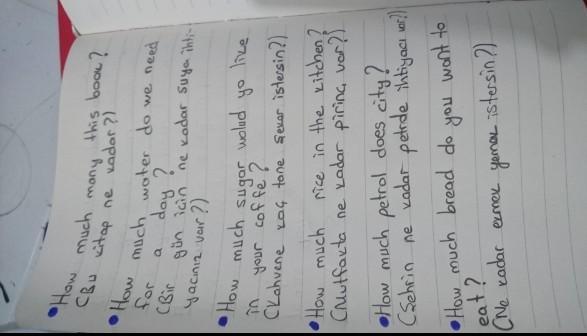 How much many this book?
(Bu kitap ne kadar?)
How much water do we need
for a day?
(Bir gün için ne kadar suya ihti-
yacınız var?)
How much sugar wolud yo like
in your coffe?
(Kahvene kaç tane şeker istersin?)
How much rice in the kitchen?
(Mutfakta ne kadar pirinç var?)
How much petrol does city?
(Şehrin ne kadar petrole ihtiyacı var?)
How much bread do you want to
eat?
(Ne kadar ekmek yemek istersin?)